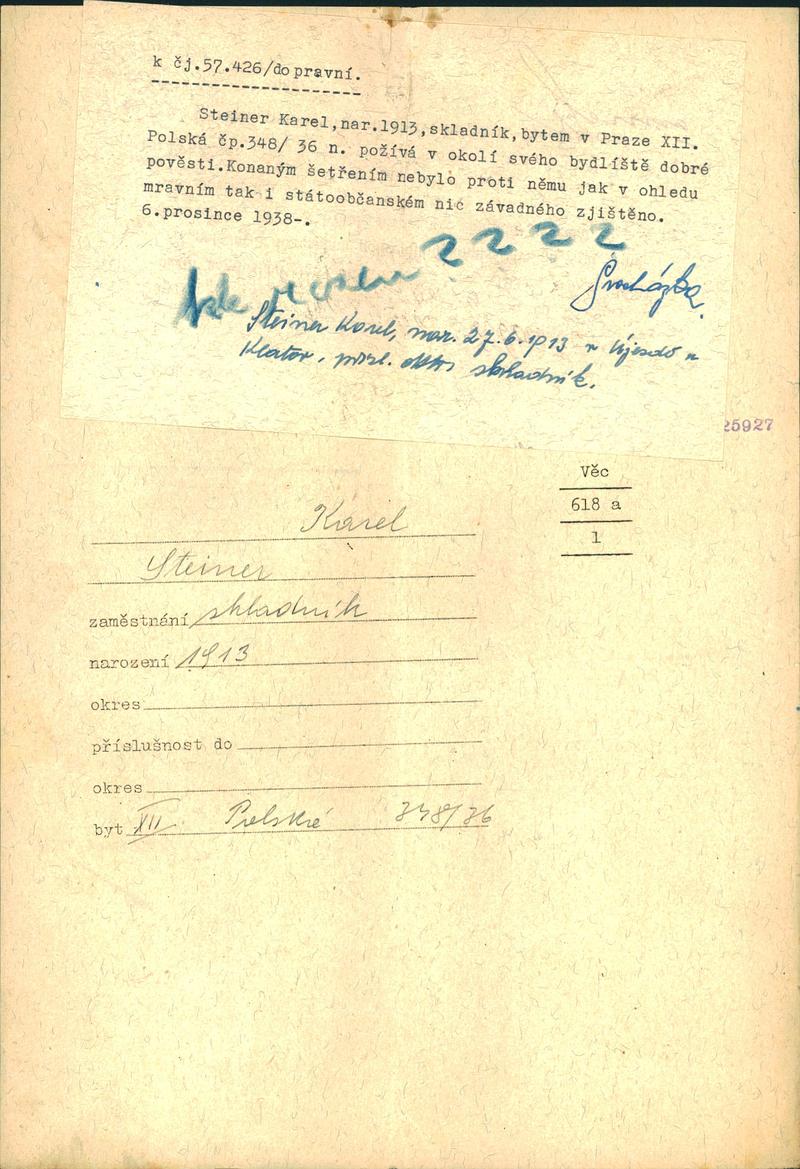 k čj.57.426/dopravní.
Steiner Karel,nar.1913,skladník,bytem v Praze XII.
Polská čp.348/ 36 n. požívá v okolí svého bydliště dobré
pověsti.Konaným šetřením nebylo proti němu jak v ohledu
mravním tak i státoobčanském nic závadného zjištěno.
6.prosince 1938-.
? ? ? ?
Procházka
Steiner Karel, nar. 27.6.1913 v Újezdě u
Klatov, skladník.
25927
Věc
618 a
1
Karel
Steiner
zaměstnání skladník
narození 1913
okres
příslušnost do
okres
byt XII Polská 348/36